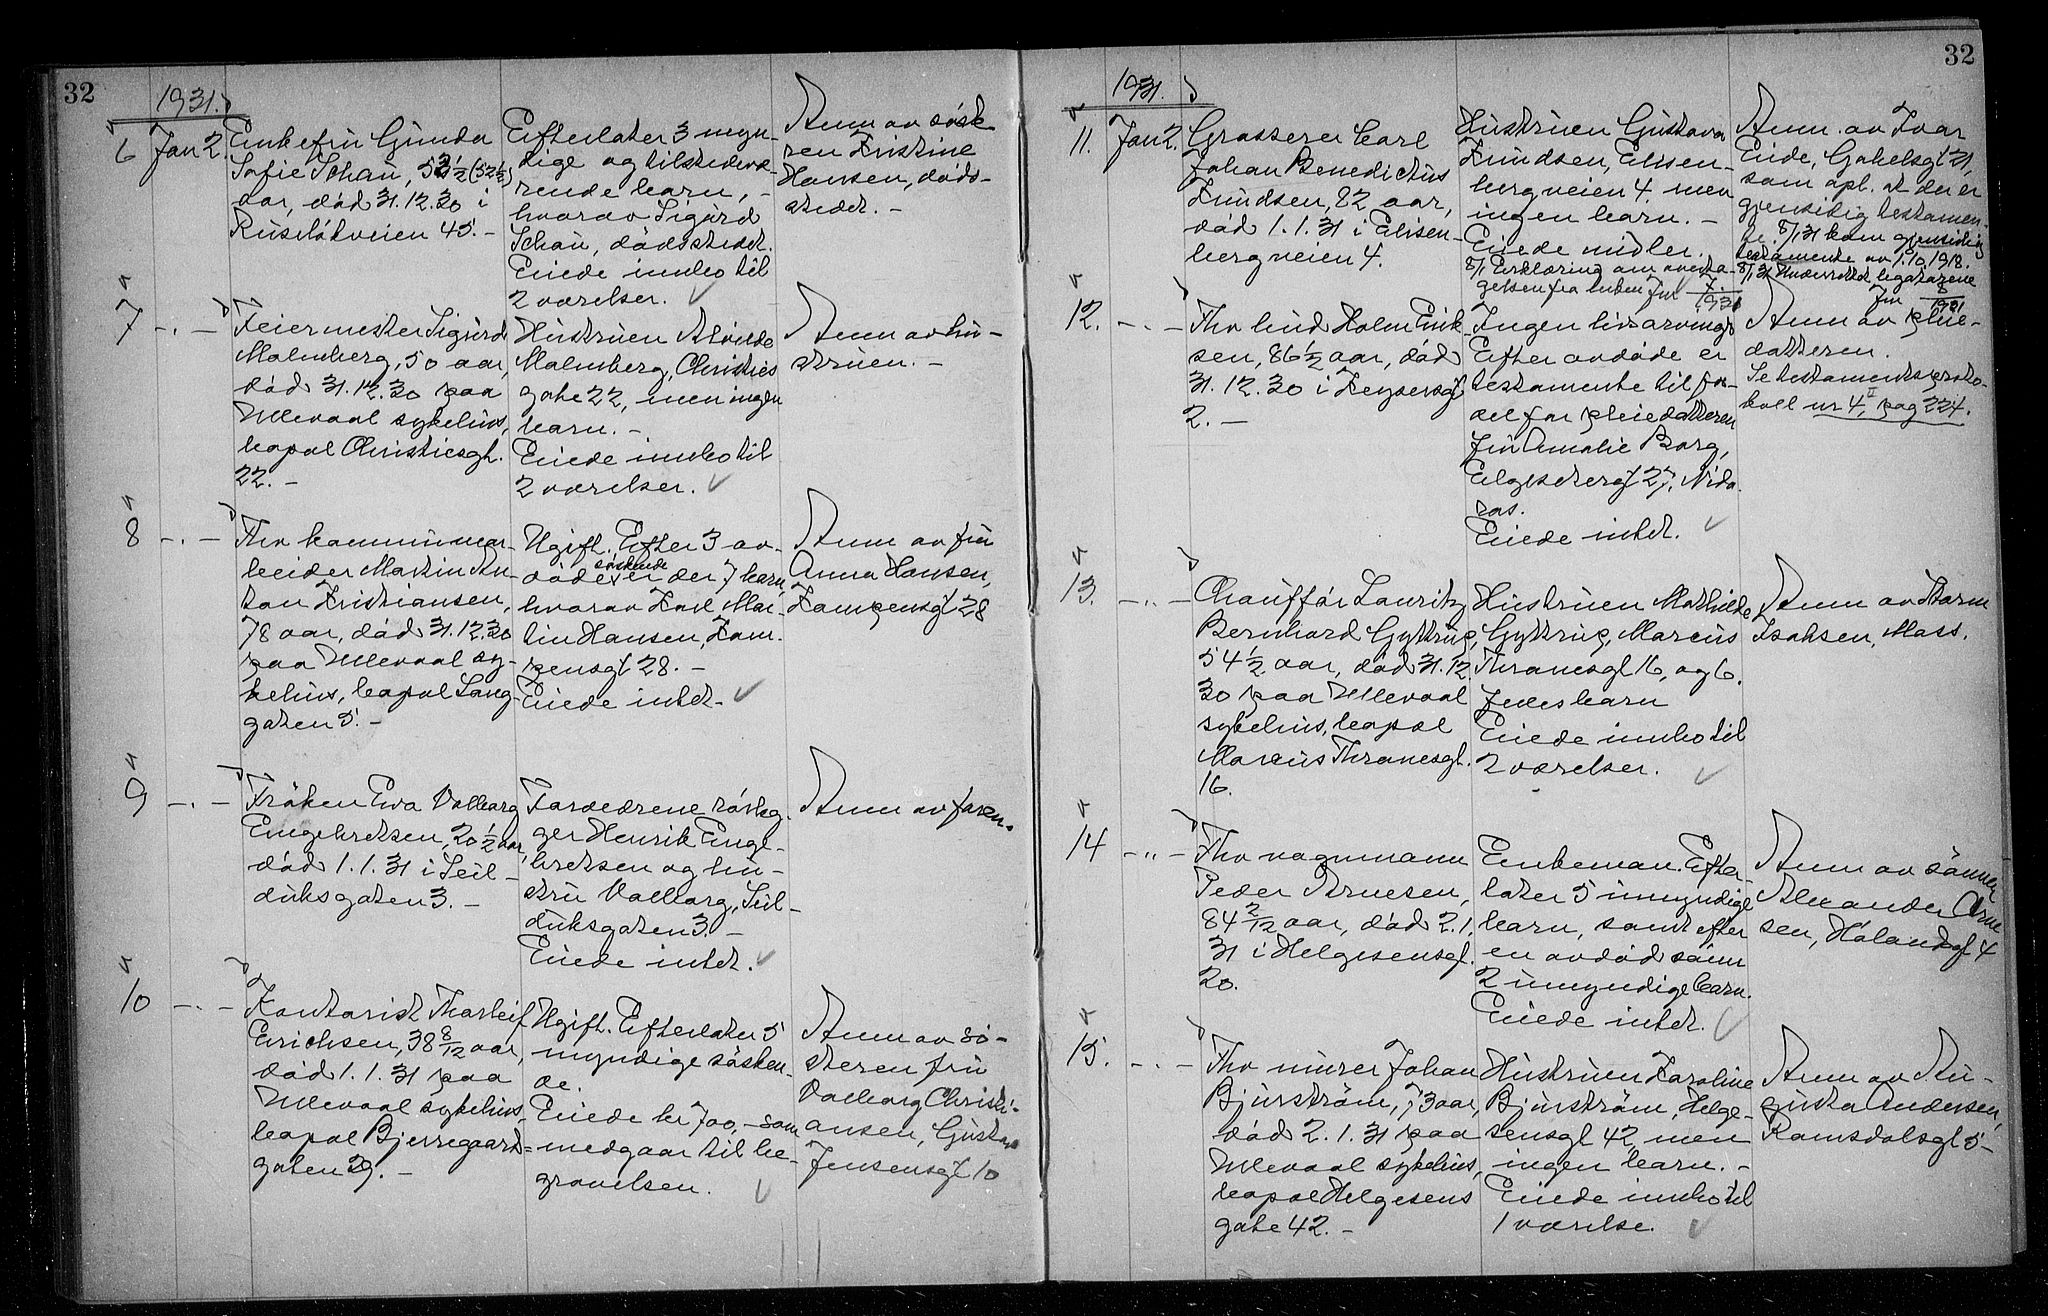 32
1931.
6 Jan 2. Enkefru Gunda
Sofie Schau, 53½ (52½)
aar, død 31.12.30 i
Ruseløkveien 45. -
Efterlater 3 myn-
dige og tilstedevæ-
rende barn, -
hvorav Sigurd
Schau, dødsstedet.
Eiede innbo til
2 værelser.
Anm av søste
ren Kristine
Hansen, døds-
stedet. -
7 -.- Feiermester Sigurd
Malmberg, 50 aar,
død 31.12.30 paa
Ullevaal sykehus,
bopæl Christiesgt.
22. -
Hustruen Alvilde
Malmberg, Christies
gate 22, men ingen
barn. -
Eiede innbo til
2 værelser.
Anm av hu-
struen. -
8 -.- Fhv kommunear-
beider Martin An-
ton Kristiansen,
78 aar, død 31.12.30
paa Ullevaal sy-
kehus, bopæl Lang-
gaten 5. -
Ugift. Efter 3 av-
døde søskende er der 7 barn,
hvorav Karl Mar-
tin Hansen, Kam-
pensgt 28. -
Eiede intet. -
Anm av fru
Anna Hansen,
Kampensgt 28
9 -.- Frøken Eva Valborg
Engebretsen, 20½ aar,
død 1.1.31 i Seil-
duksgaten 3. -
Forældrene rørleg-
ger Henrik Enge-
bretsen og hu-
stru Valborg, Seil-
duksgaten 3. -
Eiede intet.
Anm av faren.
10 -.- Kontorist Thorleif
Erichsen, 38 8/12 aar,
død 1.1.31 paa
Ullevaal sykehus,
bopæl Bjerregaard-
gaten 29. -
Ugift. Efterlater 5
myndige søsken-
de.
Eiede kr 700,- som
medgaar til be-
gravelsen.
Anm av sø-
steren fru
Valborg Christi-
ansen, Gustav
Jensensgt 10
32
1931.
11. Jan 2. Grosserer Carl
Johan Benedictus
Knudsen, 82 aar,
død 1.1.31 i Elisen-
bergveien 4.
Hustruen Gustava
Knudsen, Elisen-
bergveien 4. men
ingen barn. -
Eiede midler.
8/1 Erklæring om overta-
gelsen fra enken
1931
Anm. av Ivar
Eide, Gabelsgt 21,
som opl. at der er
gjensidig testamen-
te. 8/1 31 kom gjensidig
testamente av 1.10.1918.
8/1 31 Underrettet legatarene
1931
12. -.- Fhv bud Holm Erik
sen, 86½ aar, død
31.12.30 i Keysersgt
2. -
Ingen livsarvinger
Efter avdøde er
testamente til for-
del for pleiedatteren
fru Amalie Borg,
Elgesetergt 27, Nida-
ros.
Eiede intet.
Anm av pleie-
datteren.
Se testamentsproto-
koll nr 4, pag 224.
13. -.- Chauffør Lauritz
Bernhard Gyttrup,
54½ aar, død 31.12.
30 paa Ullevaal
sykehus, bopæl
Marcus Thranesgt.
16.
Hustruen Mathilde
Gyttrup, Marcus
Thranesgt 16, og 6.
felles barn
Eiede innbo til
2 værelser.
Anm av Thorm
Isaksen, Moss.
14 -.- Fhv vognmann
Peder Arnesen,
84 2/12 aar, død 2.1.
31 i Helgesensgt.
20.
Enkeman. Efter-
later 5 umyndige
barn, samt efter
en avdød sønn
2 umyndige barn.
Eiede intet.
Anm av sønnen
Alexander Arne
sen, Hølandsgt 4
15. -.- Fhv murer Johan
Bjurstrøm, 73 aar,
død 2.1.31 paa
Ullevaal sykehus,
bopæl Helgesens
gate 42. -
Hustruen Karoline
Bjurstrøm, Helge-
sensgt 42, men
ingen barn. -
Eiede innbo til
1 værelse.
Anm av Au-
gusta Andersen,
Ramsdalsgt 5